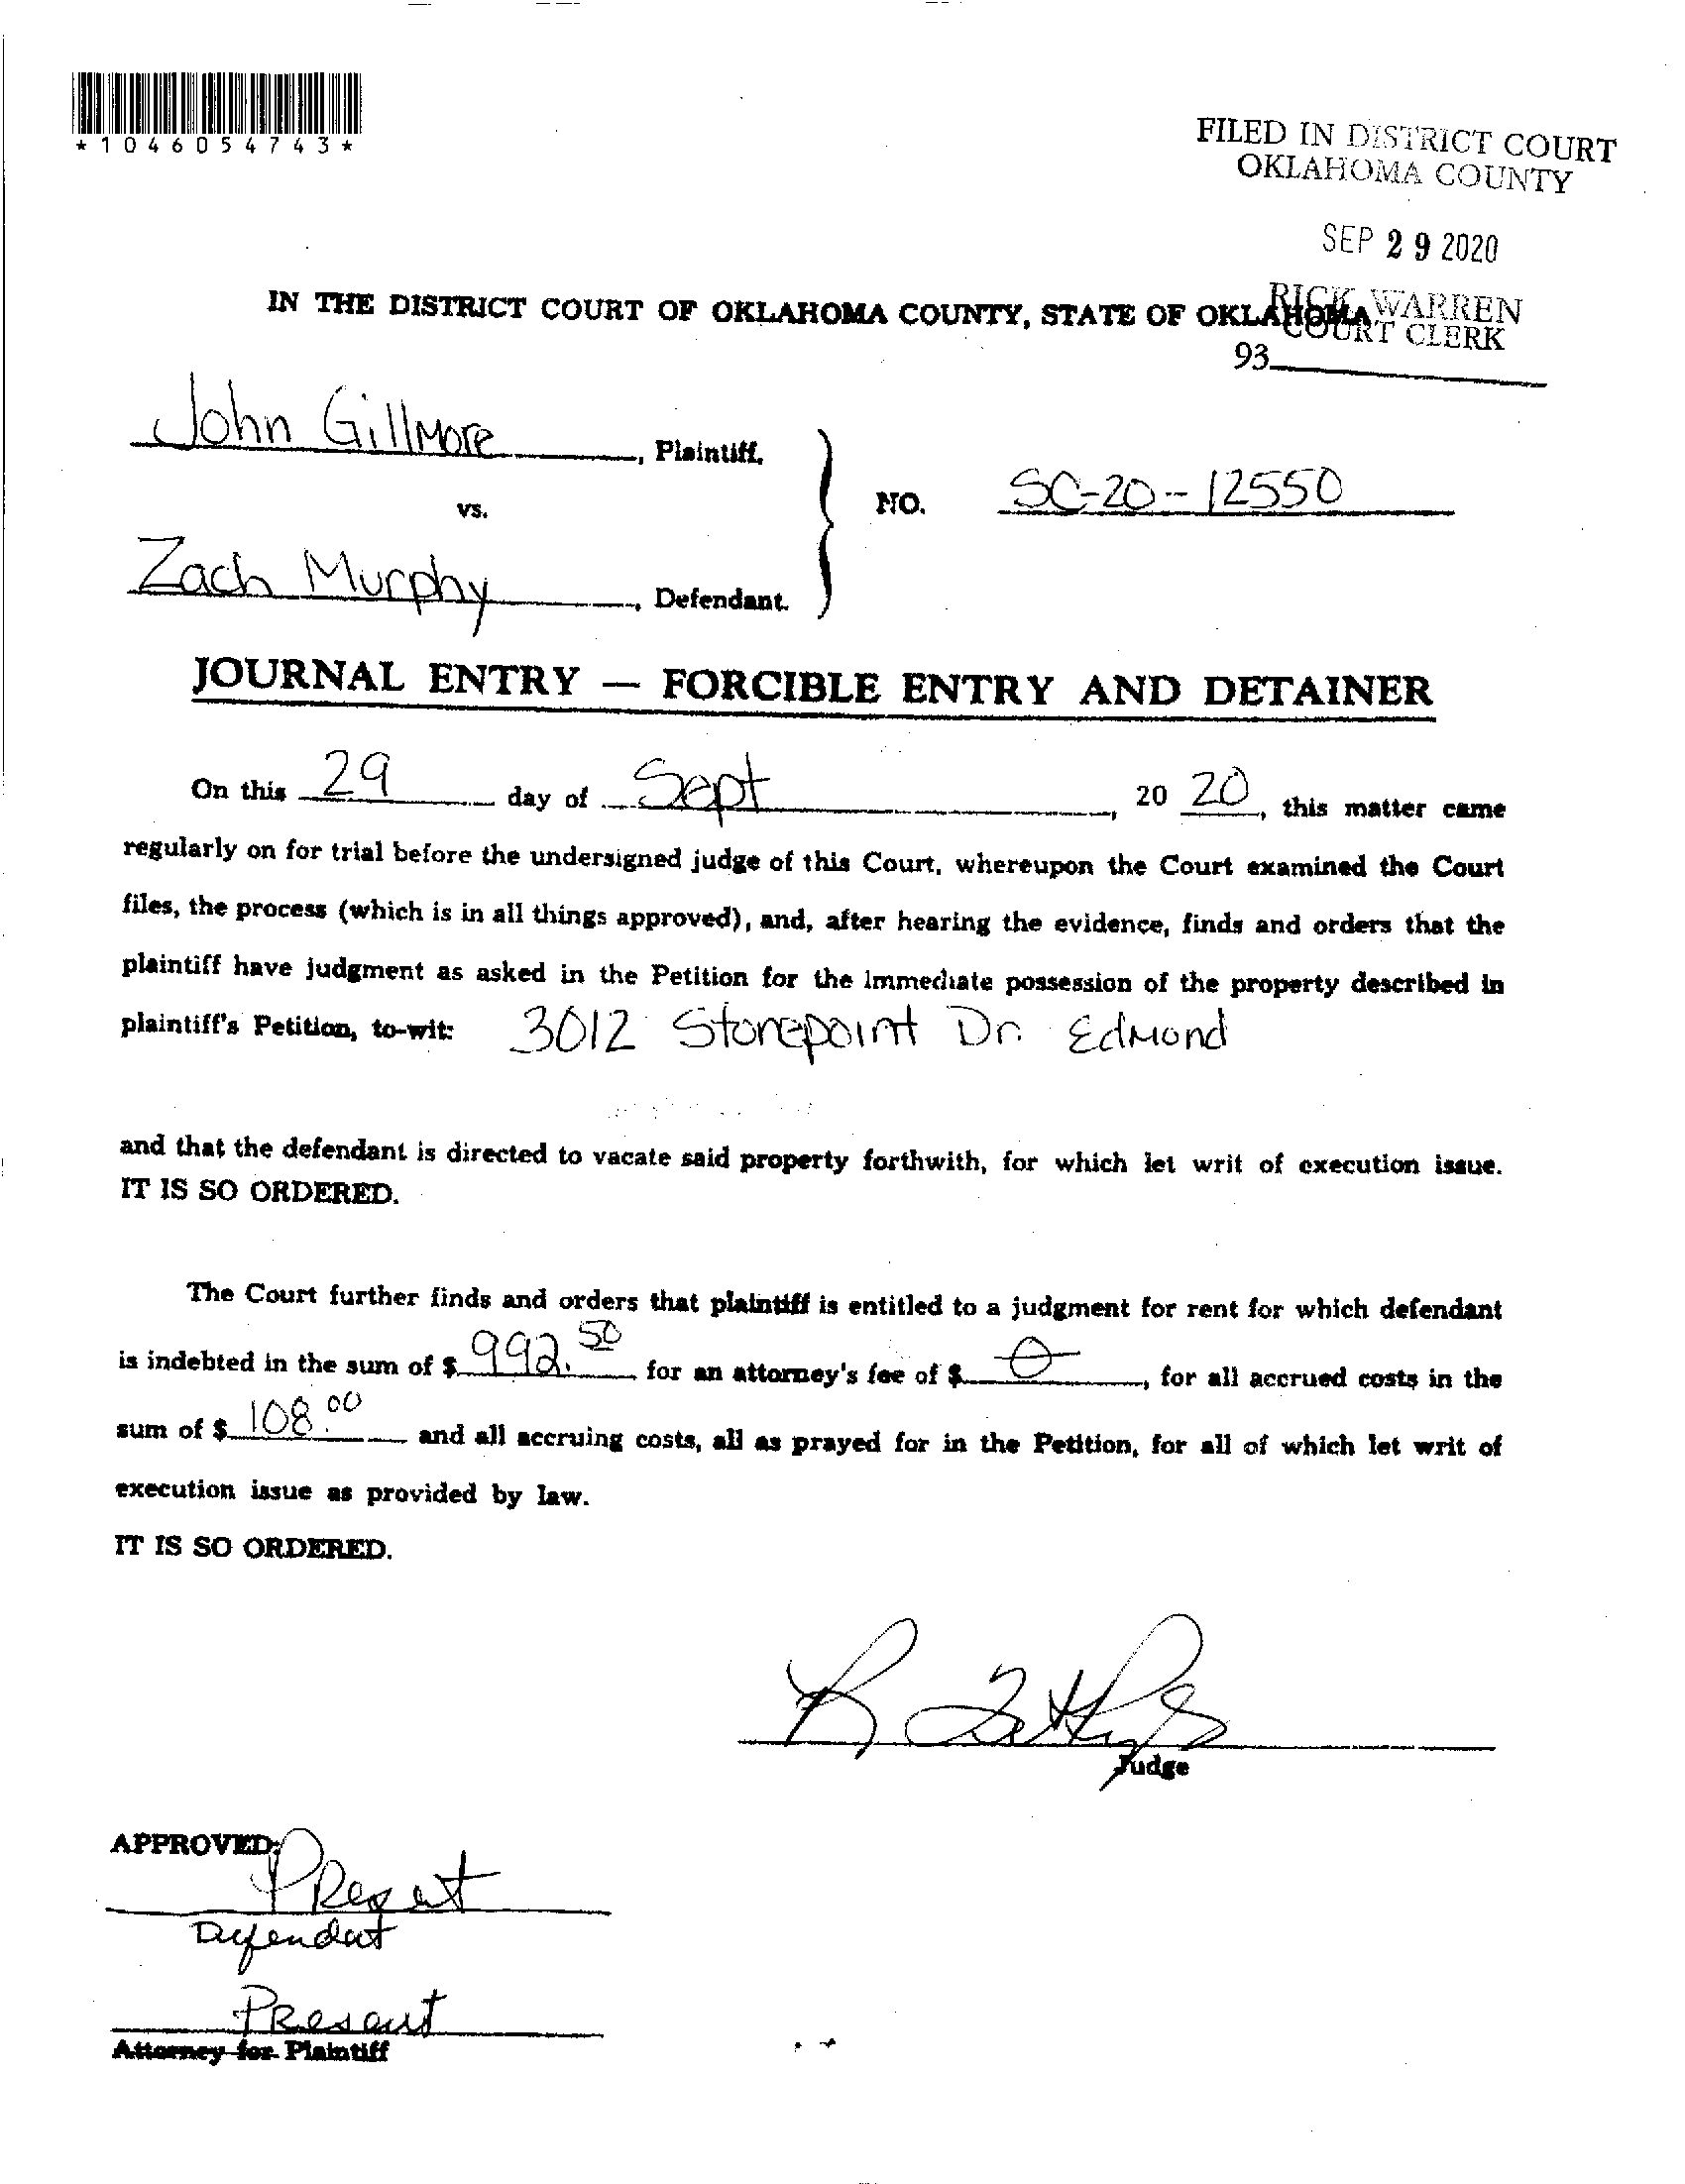 *1046054743*
FILED IN DISTRICT COURT
OKLAHOMA COUNTY
SEP 29 2020
RICK WARREN
COURT CLERK
IN THE DISTRICT COURT OF OKLAHOMA COUNTY, STATE OF OKLAHOMA
93
John Gillmore, Plaintiff,
vs.
NO. SC-20-12550
Zach Murphy, Defendant.
JOURNAL ENTRY — FORCIBLE ENTRY AND DETAINER
On this 29 day of Sept, 20 20, this matter came
regularly on for trial before the undersigned judge of this Court, whereupon the Court examined the Court
files, the process (which is in all things approved), and, after hearing the evidence, finds and orders that the
plaintiff have judgment as asked in the Petition for the immediate possession of the property described in
plaintiff's Petition, to-wit: 3012 Stonepoint Dr. Edmond
and that the defendant is directed to vacate said property forthwith, for which let writ of execution issue.
IT IS SO ORDERED.
The Court further finds and orders that plaintiff is entitled to a judgment for rent for which defendant
is indebted in the sum of $ 992.50 for an attorney's fee of $ 0, for all accrued costs in the
sum of $ 108.00 and all accruing costs, all as prayed for in the Petition, for all of which let writ of
execution issue as provided by law.
IT IS SO ORDERED.
Judge
APPROVED:
Present
Defendant
Present
Attorney for Plaintiff